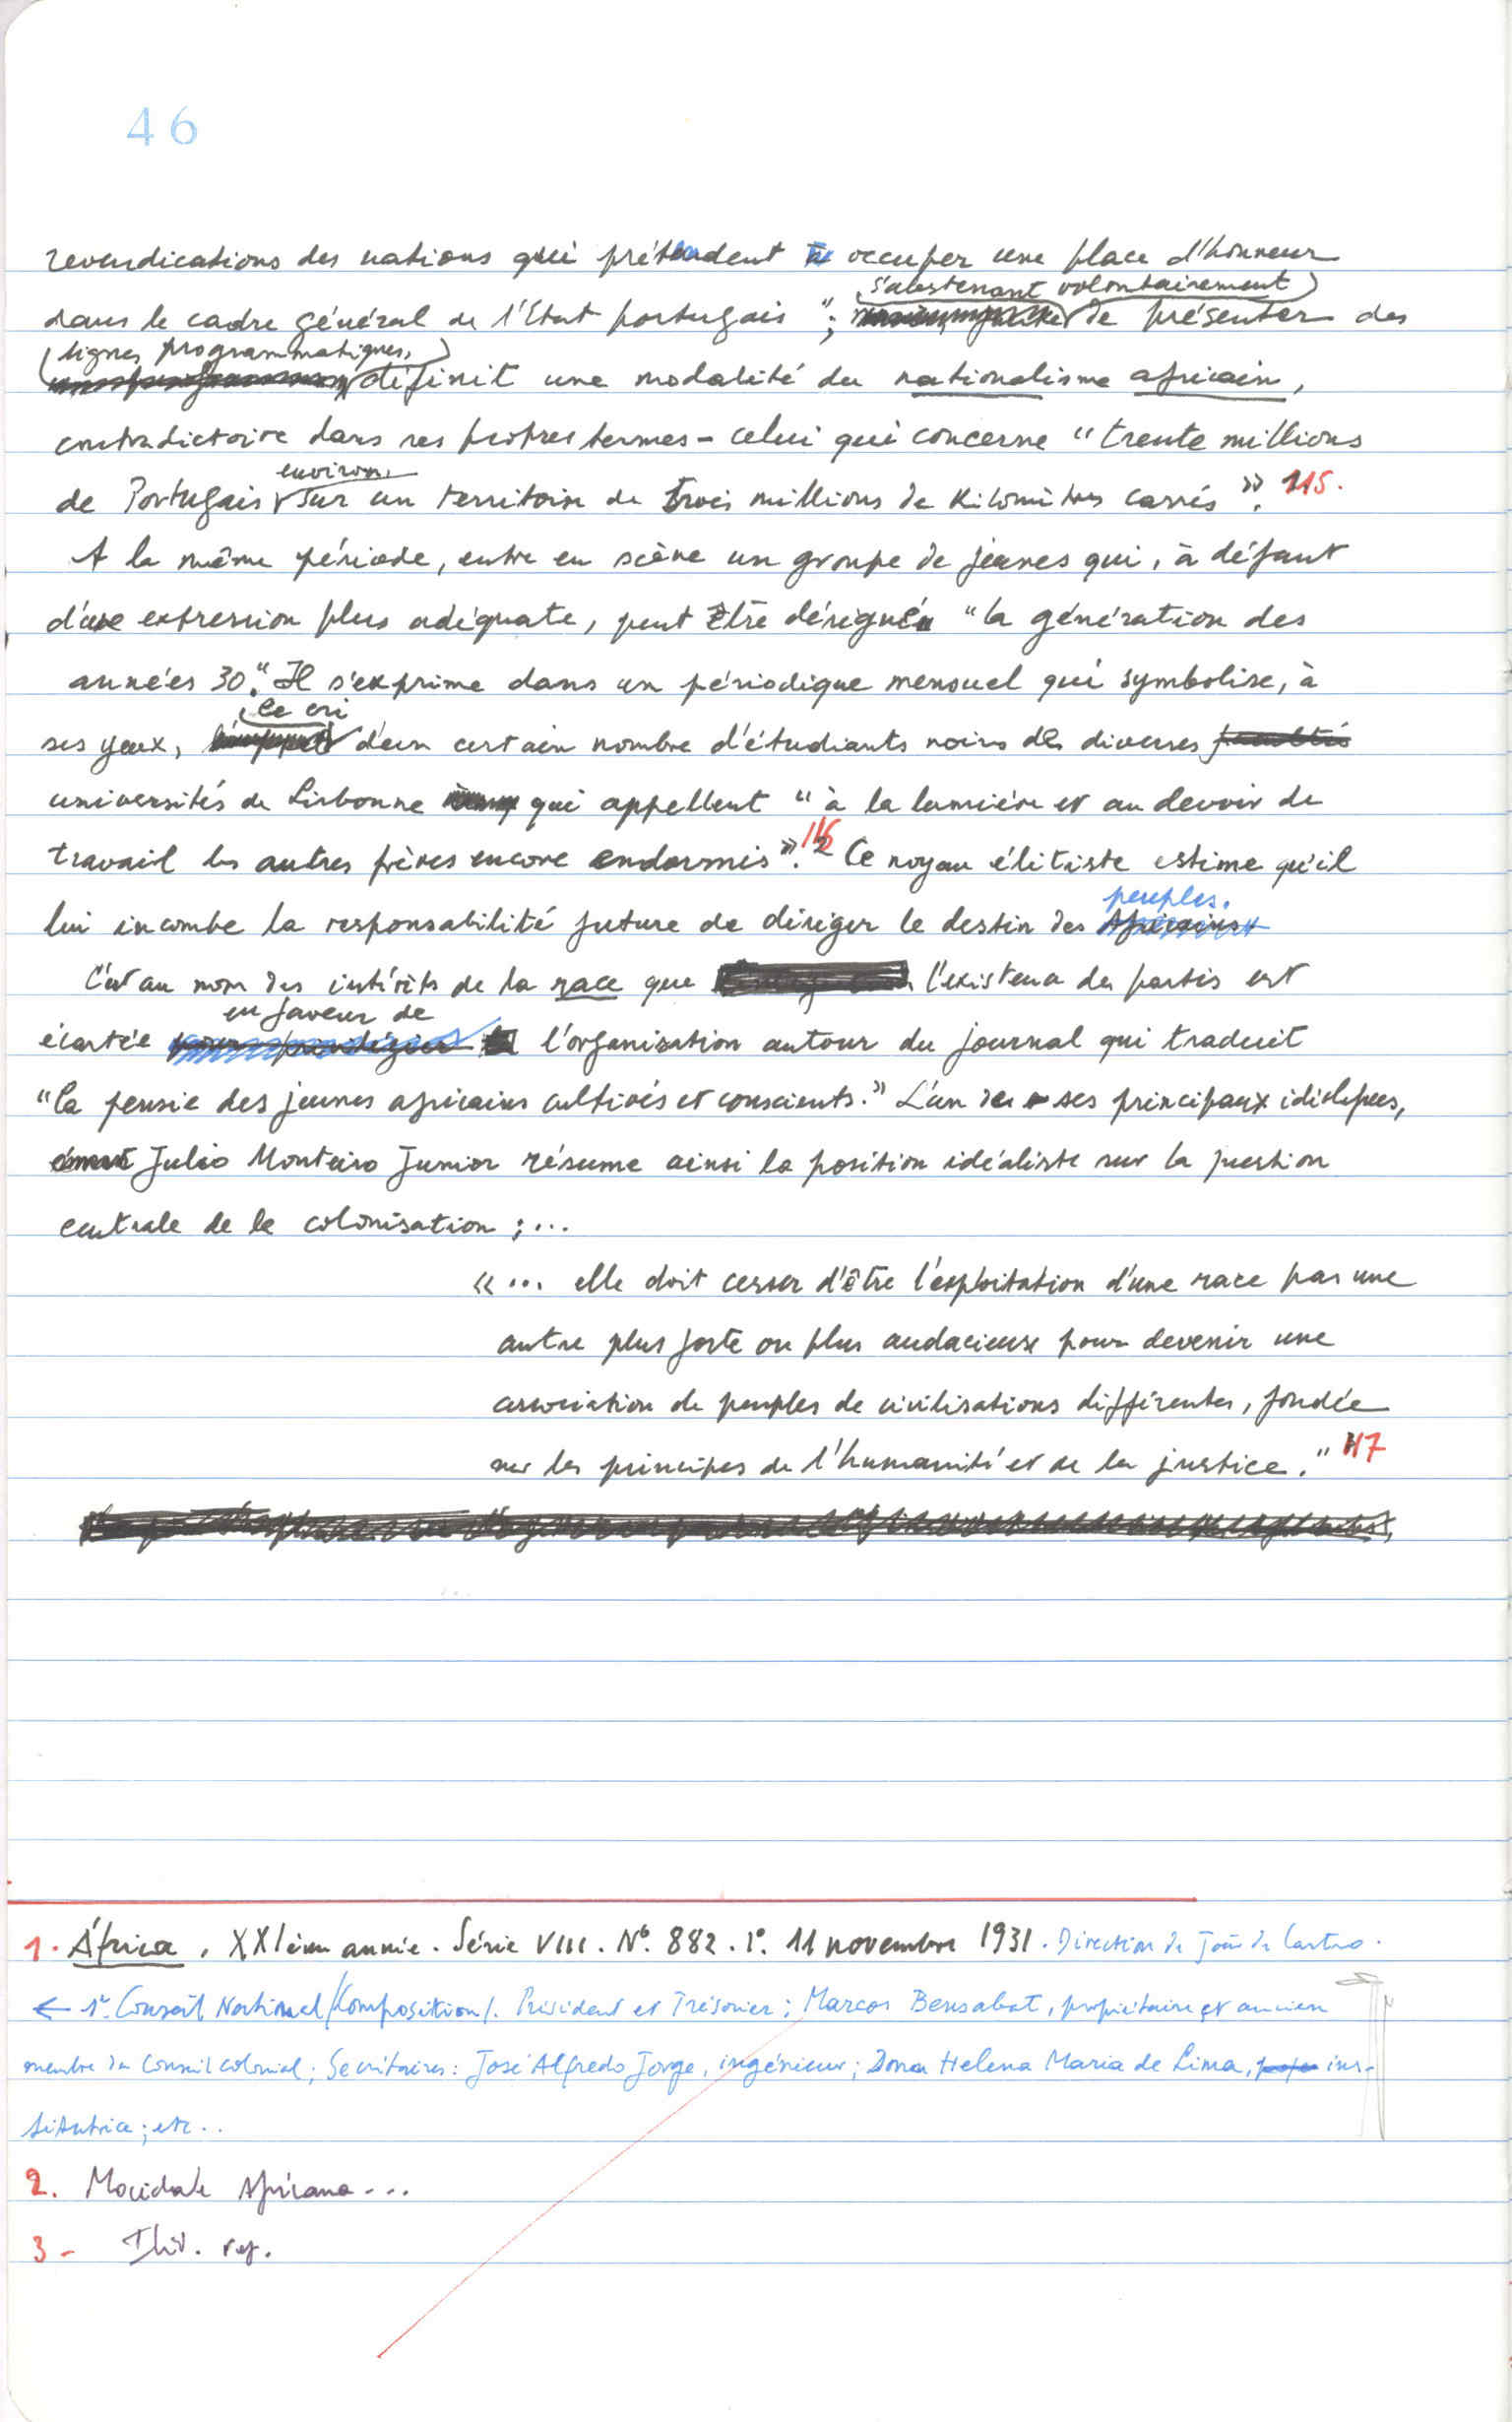 46
revendications des nations qui prétendent à occuper une place d'honneur
s'abstenant volontairement
dans le cadre général de l'Etat portugais "; de présenter des
lignes programmatiques,
définit une modalité du nationalisme africain,
contradictoire dans ses propres termes - celui qui concerne "trente millions
environ
de Portugais sur un territoire de trois millions de kilomètres carrés ". 115.
A la même période, entre en scène un groupe de jeunes qui, à défaut
d'une expression plus adéquate, peut être désigné "la génération des
années 30." Il s'exprime dans un périodique mensuel qui symbolise, à
le cri
ses yeux, d'un certain nombre d'étudiants noirs des diverses facultés
universités de Lisbonne qui appellent "à la lumière et au devoir de
travail les autres frères encore endormis". 116 Ce noyau élitiste estime qu'il
peuples.
lui incombe la responsabilité future de diriger le destin des Africains
C'est au nom des intérêts de la race que l'existence des partis est
en faveur de
écartée l'organisation autour du journal qui traduit
"la pensée des jeunes africains cultivés et conscients." L'un de ses principaux idéologues,
Julio Monteiro Junior résume ainsi la position idéaliste sur la question
centrale de la colonisation ; ...
«... elle doit cesser d'être l'exploitation d'une race par une
autre plus forte ou plus audacieuse pour devenir une
association de peuples de civilisations différentes, fondée
sur les principes de l'humanité et de la justice." 117
1. África. XXIème année. Série VIII. Nº. 882. 1º. 11 novembre 1931. Direction de João de Castro.
← 1º. Conseil National /Composition/. Président et Trésorier : Marcos Bensabat, propriétaire et ancien
membre du Conseil colonial ; Secrétaires : José Alfredo Jorge, ingénieur ; Dona Helena Maria de Lima, ins-
titutrice ; etc..
2. Mocidade Africana...
3 - Ibid. ref.